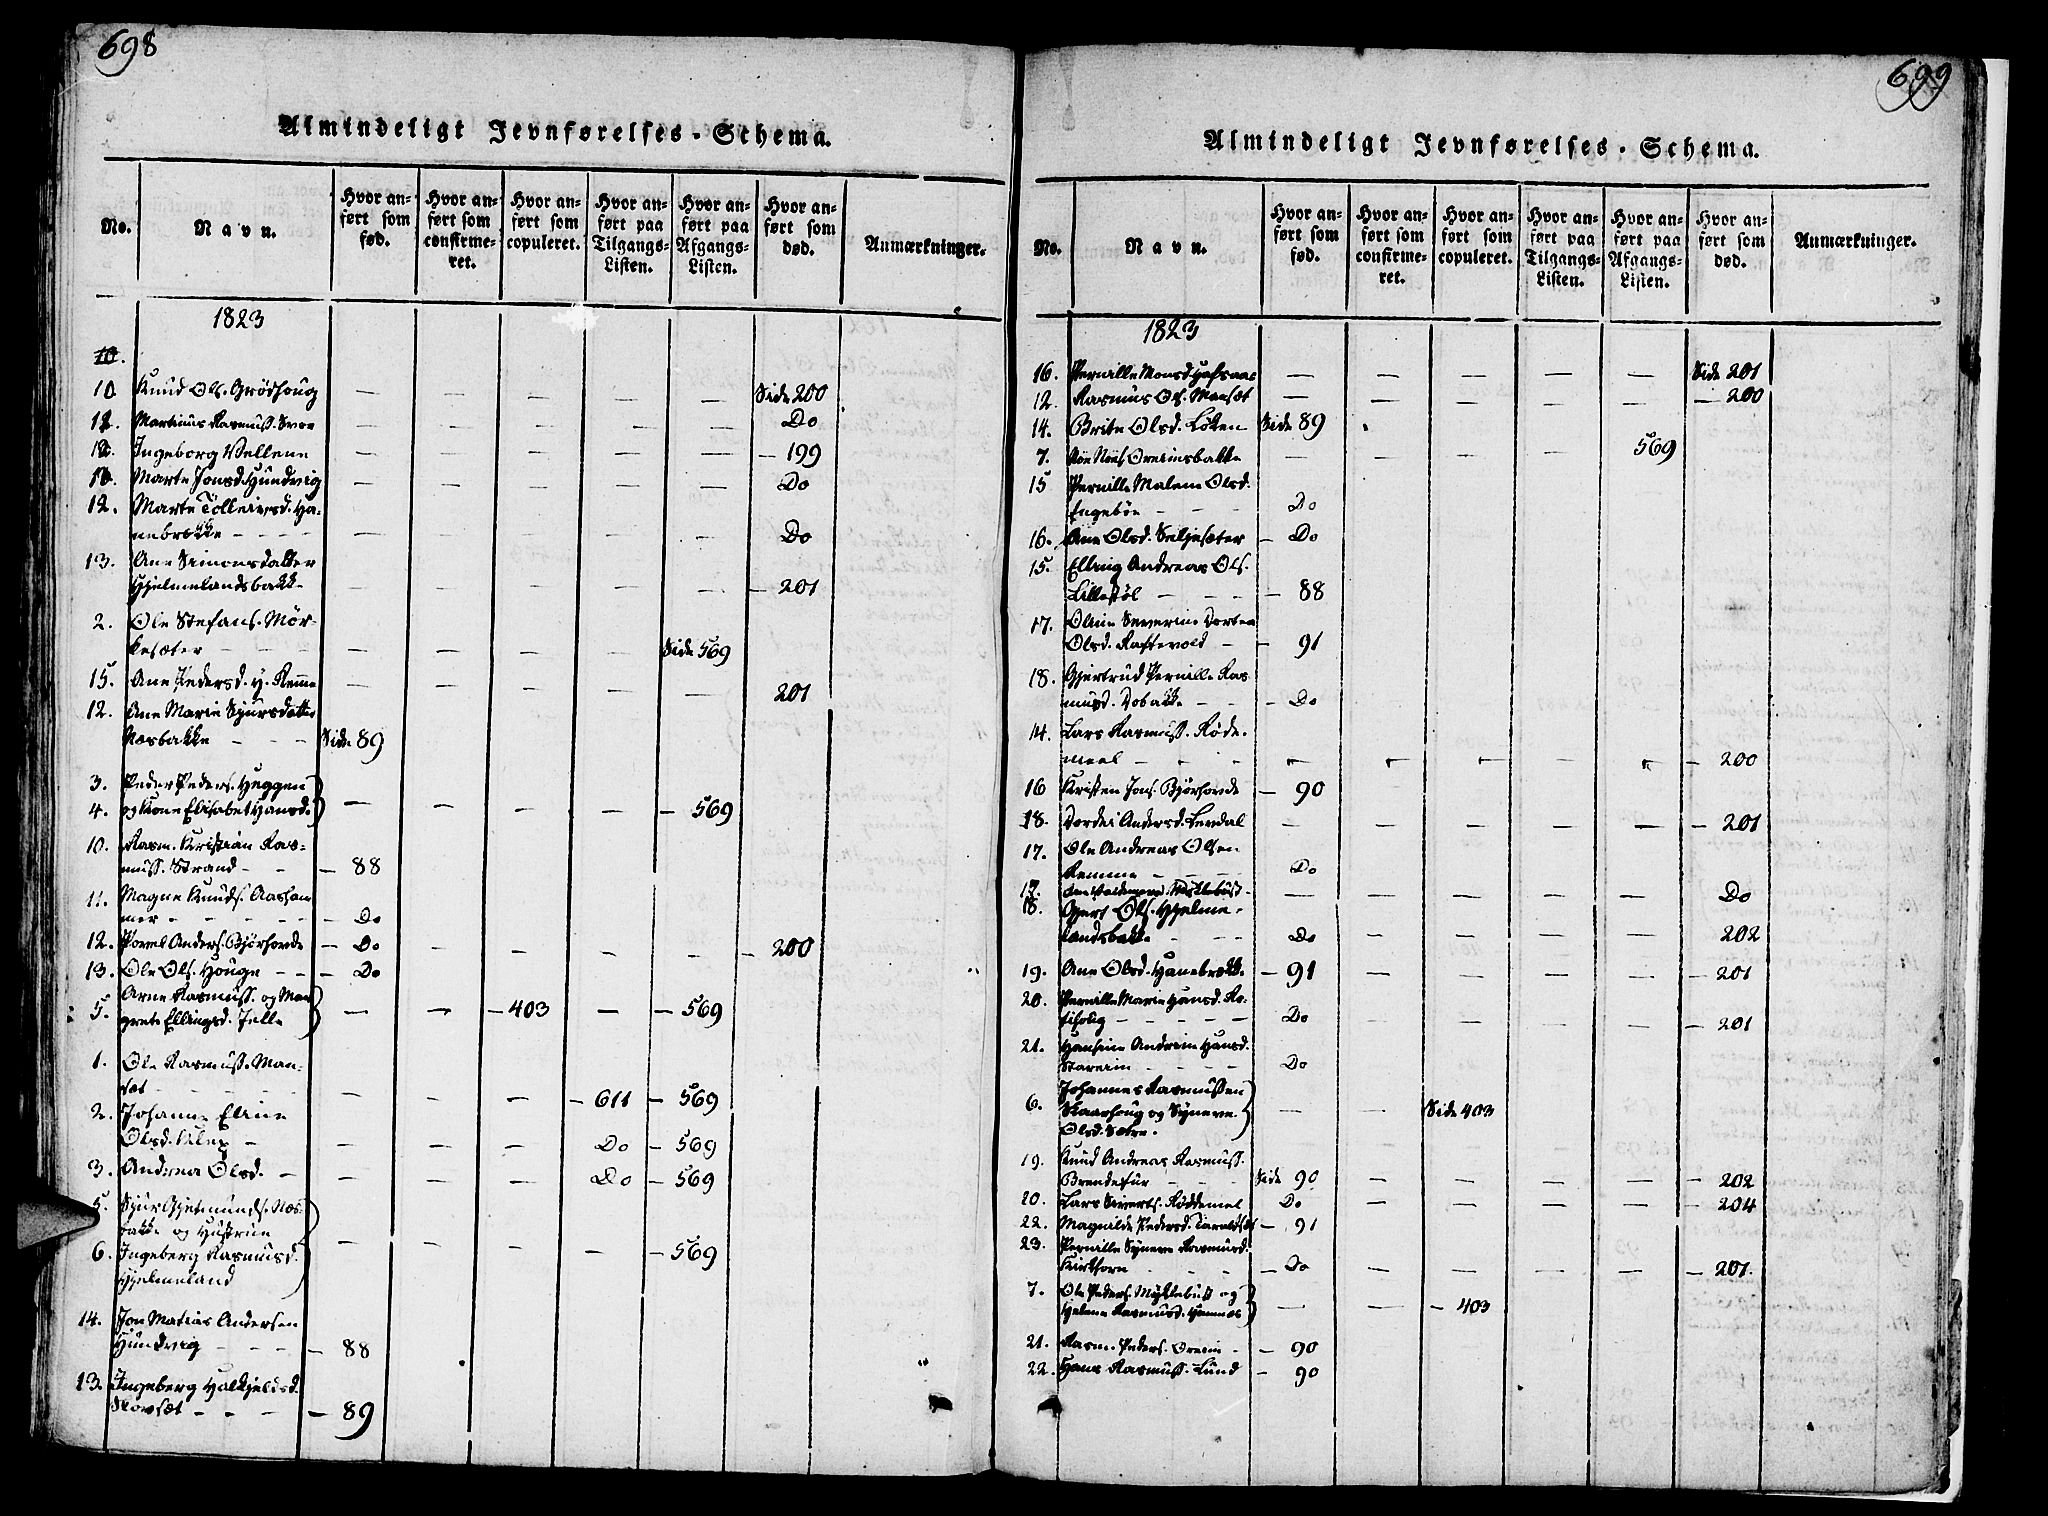 698
Almindeligt Jevnførelses-Schema.
No. Navn. Hvor anført som fød. Hvor anført som confirmeret. Hvor anført som copuleret. Hvor anført paa Tilgangs-Listen. Hvor anført paa Afgangs-Listen. Hvor anført som død. Anmærkninger.
1823
10.
10 Knud Ols. Grødhoug — — — — — Side 200
12. Martinus Rasmuss. — — — — — Do
12. Ingeborg Vellene — — — — — – 199
16. Marte Jonsd. Hundvig — — — — — Do
12. Marte Tolleivsd. Ha-
nebrekke — — — — — Do
13. Ane Simonsdatter
Hjelmelandsbakk. — — — — — – 201
2. Ole Stefans. Mør-
kesæter — — — — Side 569
15. Ane Pedersd. y. Remme — — — — — 201
12. Ane Marie Sjursdatter
Næsbakke – – – Side 89
3. Peder Peders. Heggen
4. og Kone Elisabet Hansd. — — — — – 569
10. Rasm. Kristian Ras-
muss. Strand – – – 88
11. Magne Knuds. Aasham-
mer – – – – – Do
12. Povel Anders. Bjørhovde – Do — — — — – 200
13. Ole Ols. Houge – – – Do
Arne Rasmuss. og Mar-
5. grete Ellingsd. Jelle — — – 403 — – 569
1. Ole Rasmuss. Man-
sæt – – – — — — – 611 – 569
2. Johanne Eline
Olsd. – — — — Do – 569
3. Andrea Olsd. – — — — Do – 569
5. Sjur Gjetmunds. Næs-
bakke og Hustrue
6. Ingeborg Rasmusd. — — — — – 569
Hjelmeland
14. Jon Matias Andersen
Hundvig – – – – 88
13. Ingeborg Halkjeldsd.
– – – – 89
699
Almindeligt Jevnførelses-Schema.
No. Navn. Hvor anført som fød. Hvor anført som confirmeret. Hvor anført som copuleret. Hvor anført paa Tilgangs-Listen. Hvor anført paa Afgangs-Listen. Hvor anført som død. Anmærkninger.
1823
16. Pernille Monsd. Hafsaas — — — — — Side 201
12. Rasmus Ols. Mansæt — — — — — – 200
14. Brite Olsd. Løken Side 89
7. — — — — 569
15 Pernille Malene Olsd.
Engebøe – – – Do
16. Ane Olsd. Seljesæter – Do
15. Elling Andreas Ols.
Lillestøl – – – – 88
17. Oline Severine Dortea
Olsd. Raftevold – – 91
18. Gjertrud Pernille Ras-
musd. Dobakk. – – – Do
14. Lars Rasmuss. Røde-
meel – – – – — — — — — – 200
16 Kristen Jons. Bjørhovde – 90
18. Dordei Andersd. Lerdal — — — — — – 201
17. Ole Andreas Olsen
Remme – – – Do
17. Myklebust – — — — — Do
18. Gjert Ols. Hjelme-
landsbakk. – – – Do — — — — 202
19. Ane Olsd. Hanebrekk. – 91 — — — — – 201
20. Pernille Marie Hansd. Ro-
– – – – – Do — — — — – 201
21. Hansine Andrine Hansd.
Starein – – – – Do
Johannes Rasmussen
6. Skaarhoug og Synneve — — Side 403
Olsd. Sætre.
19. Knud Andreas Rasmuss.
Brendefur – – – Side 90 — — — — – 202
20. Lars Siverts. Røddemel Do — — — — – 204
22. Magnilde Pedersd. Taraldsæt – 91
23. Pernille Synneve Rasmusd.
Kirkhorn – – – – Do — — — — – 201.
7. Ole Peders. Myklebust og
Helene Rasmusd. Hamnes — — – 403
21. Rasm. Peders. – – 90
22. Hans Rasmuss. Lund – 90